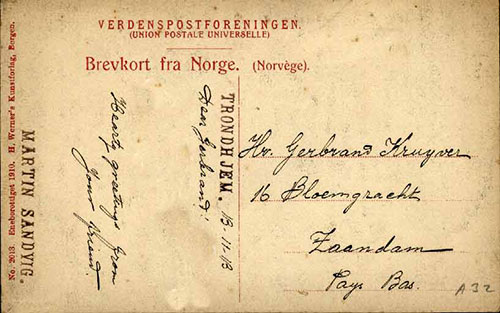 VERDENSPOSTFORENINGEN.
(UNION POSTALE UNIVERSELLE)
Brevkort fra Norge. (Norvège).
No. 2013. Eneberettiget 1910. H. Werner's Kunstforlag, Bergen.
MARTIN SANDVIG.
TRONDHJEM. 13-11-13
Dear Gerbrand!
Hearty greetings from
your friend.
Hr. Gerbrand Kruyver
16 Bloemgracht
Zaandam
Pays Bas.
A32